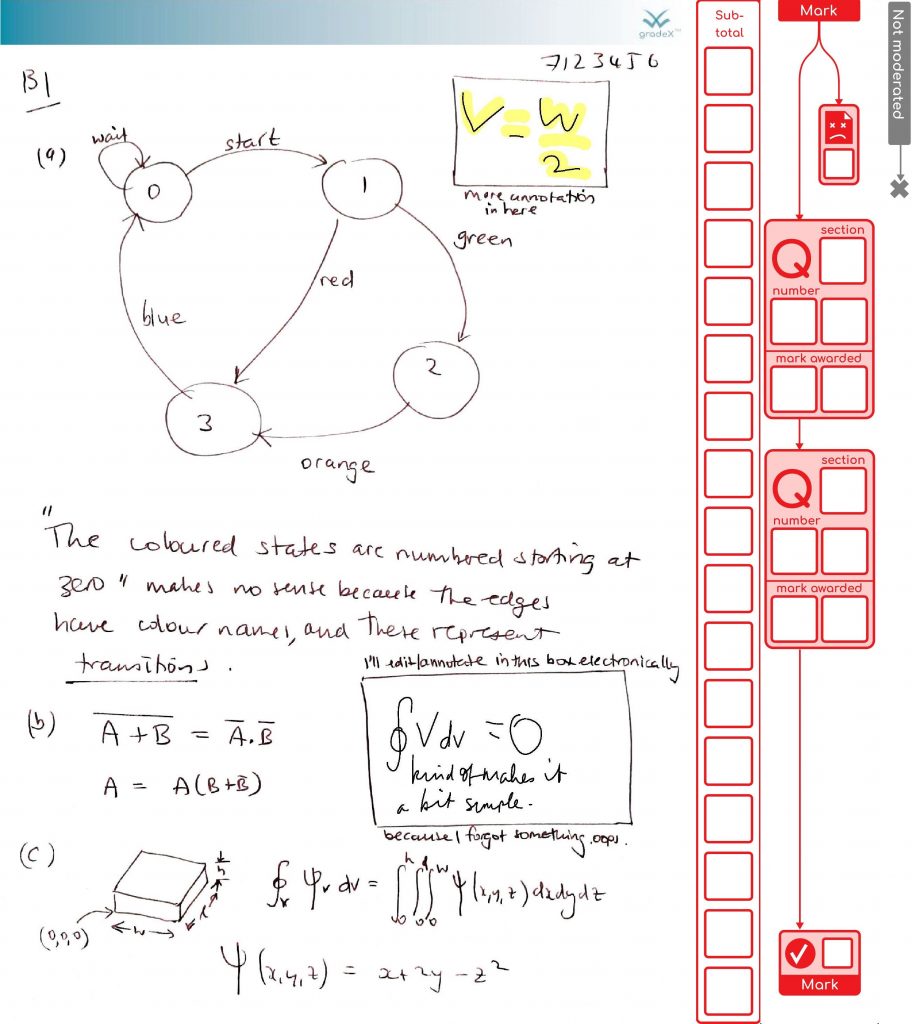 gradeX™
7123456
B1
(a)
wait
start
0
1
V = W
2
more annotation
in here
green
red
blue
2
3
orange
"The coloured states are numbered starting at
zero" makes no sense because the edges
have colour names, and these represent
transitions.
I'll edit/annotate in this box electronically
∮ V dv = 0
kind of makes it
a bit simple.
because I forgot something, oops.
(b)
A̅ ̅+̅ ̅B̅ = A̅.B̅
A = A(B+B̅)
(c)
h
l
w
(0,0,0)
∮ᵥ ψᵥ dv = ∫₀ʰ ∫₀ˡ ∫₀ʷ ψ(x,y,z) dx dy dz
ψ(x,y,z) = x+2y-z²
Sub-
total
Mark
section
Q
number
mark awarded
section
Q
number
mark awarded
Mark
Not moderated